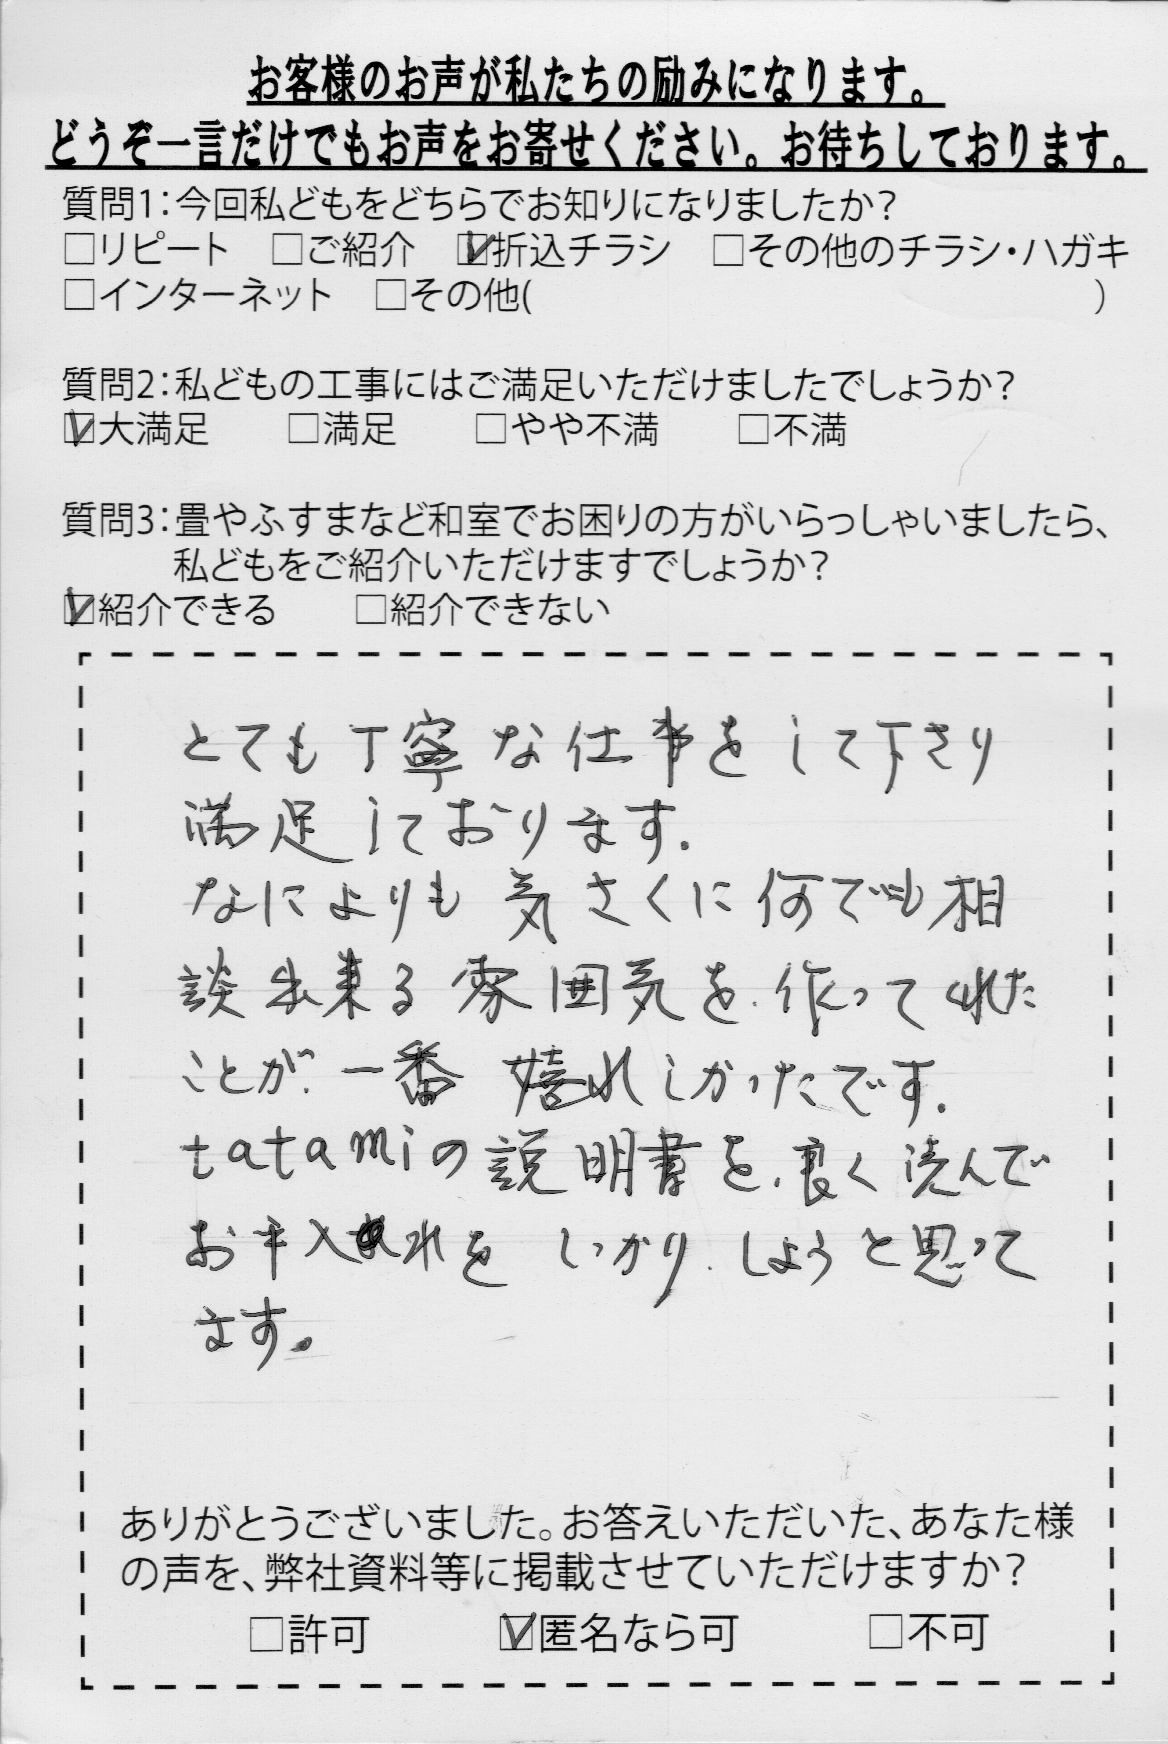 お客様のお声が私たちの励みになります。
どうぞ一言だけでもお声をお寄せください。お待ちしております。
質問1：今回私どもをどちらでお知りになりましたか？
□リピート □ご紹介 ☑折込チラシ □その他のチラシ・ハガキ
□インターネット □その他( )
質問2：私どもの工事にはご満足いただけましたでしょうか？
☑大満足 □満足 □やや不満 □不満
質問3：畳やふすまなど和室でお困りの方がいらっしゃいましたら、
私どもをご紹介いただけますでしょうか？
☑紹介できる □紹介できない
とても丁寧な仕事をして下さり
満足しております.
なによりも気さくに何でも相
談出来る雰囲気を作ってくれた
ことが一番嬉れしかったです.
tatamiの説明書を良く読んで
お手入れを しっかりしようと思って
ます。
ありがとうございました。お答えいただいた、あなた様
の声を、弊社資料等に掲載させていただけますか？
□許可 ☑匿名なら可 □不可